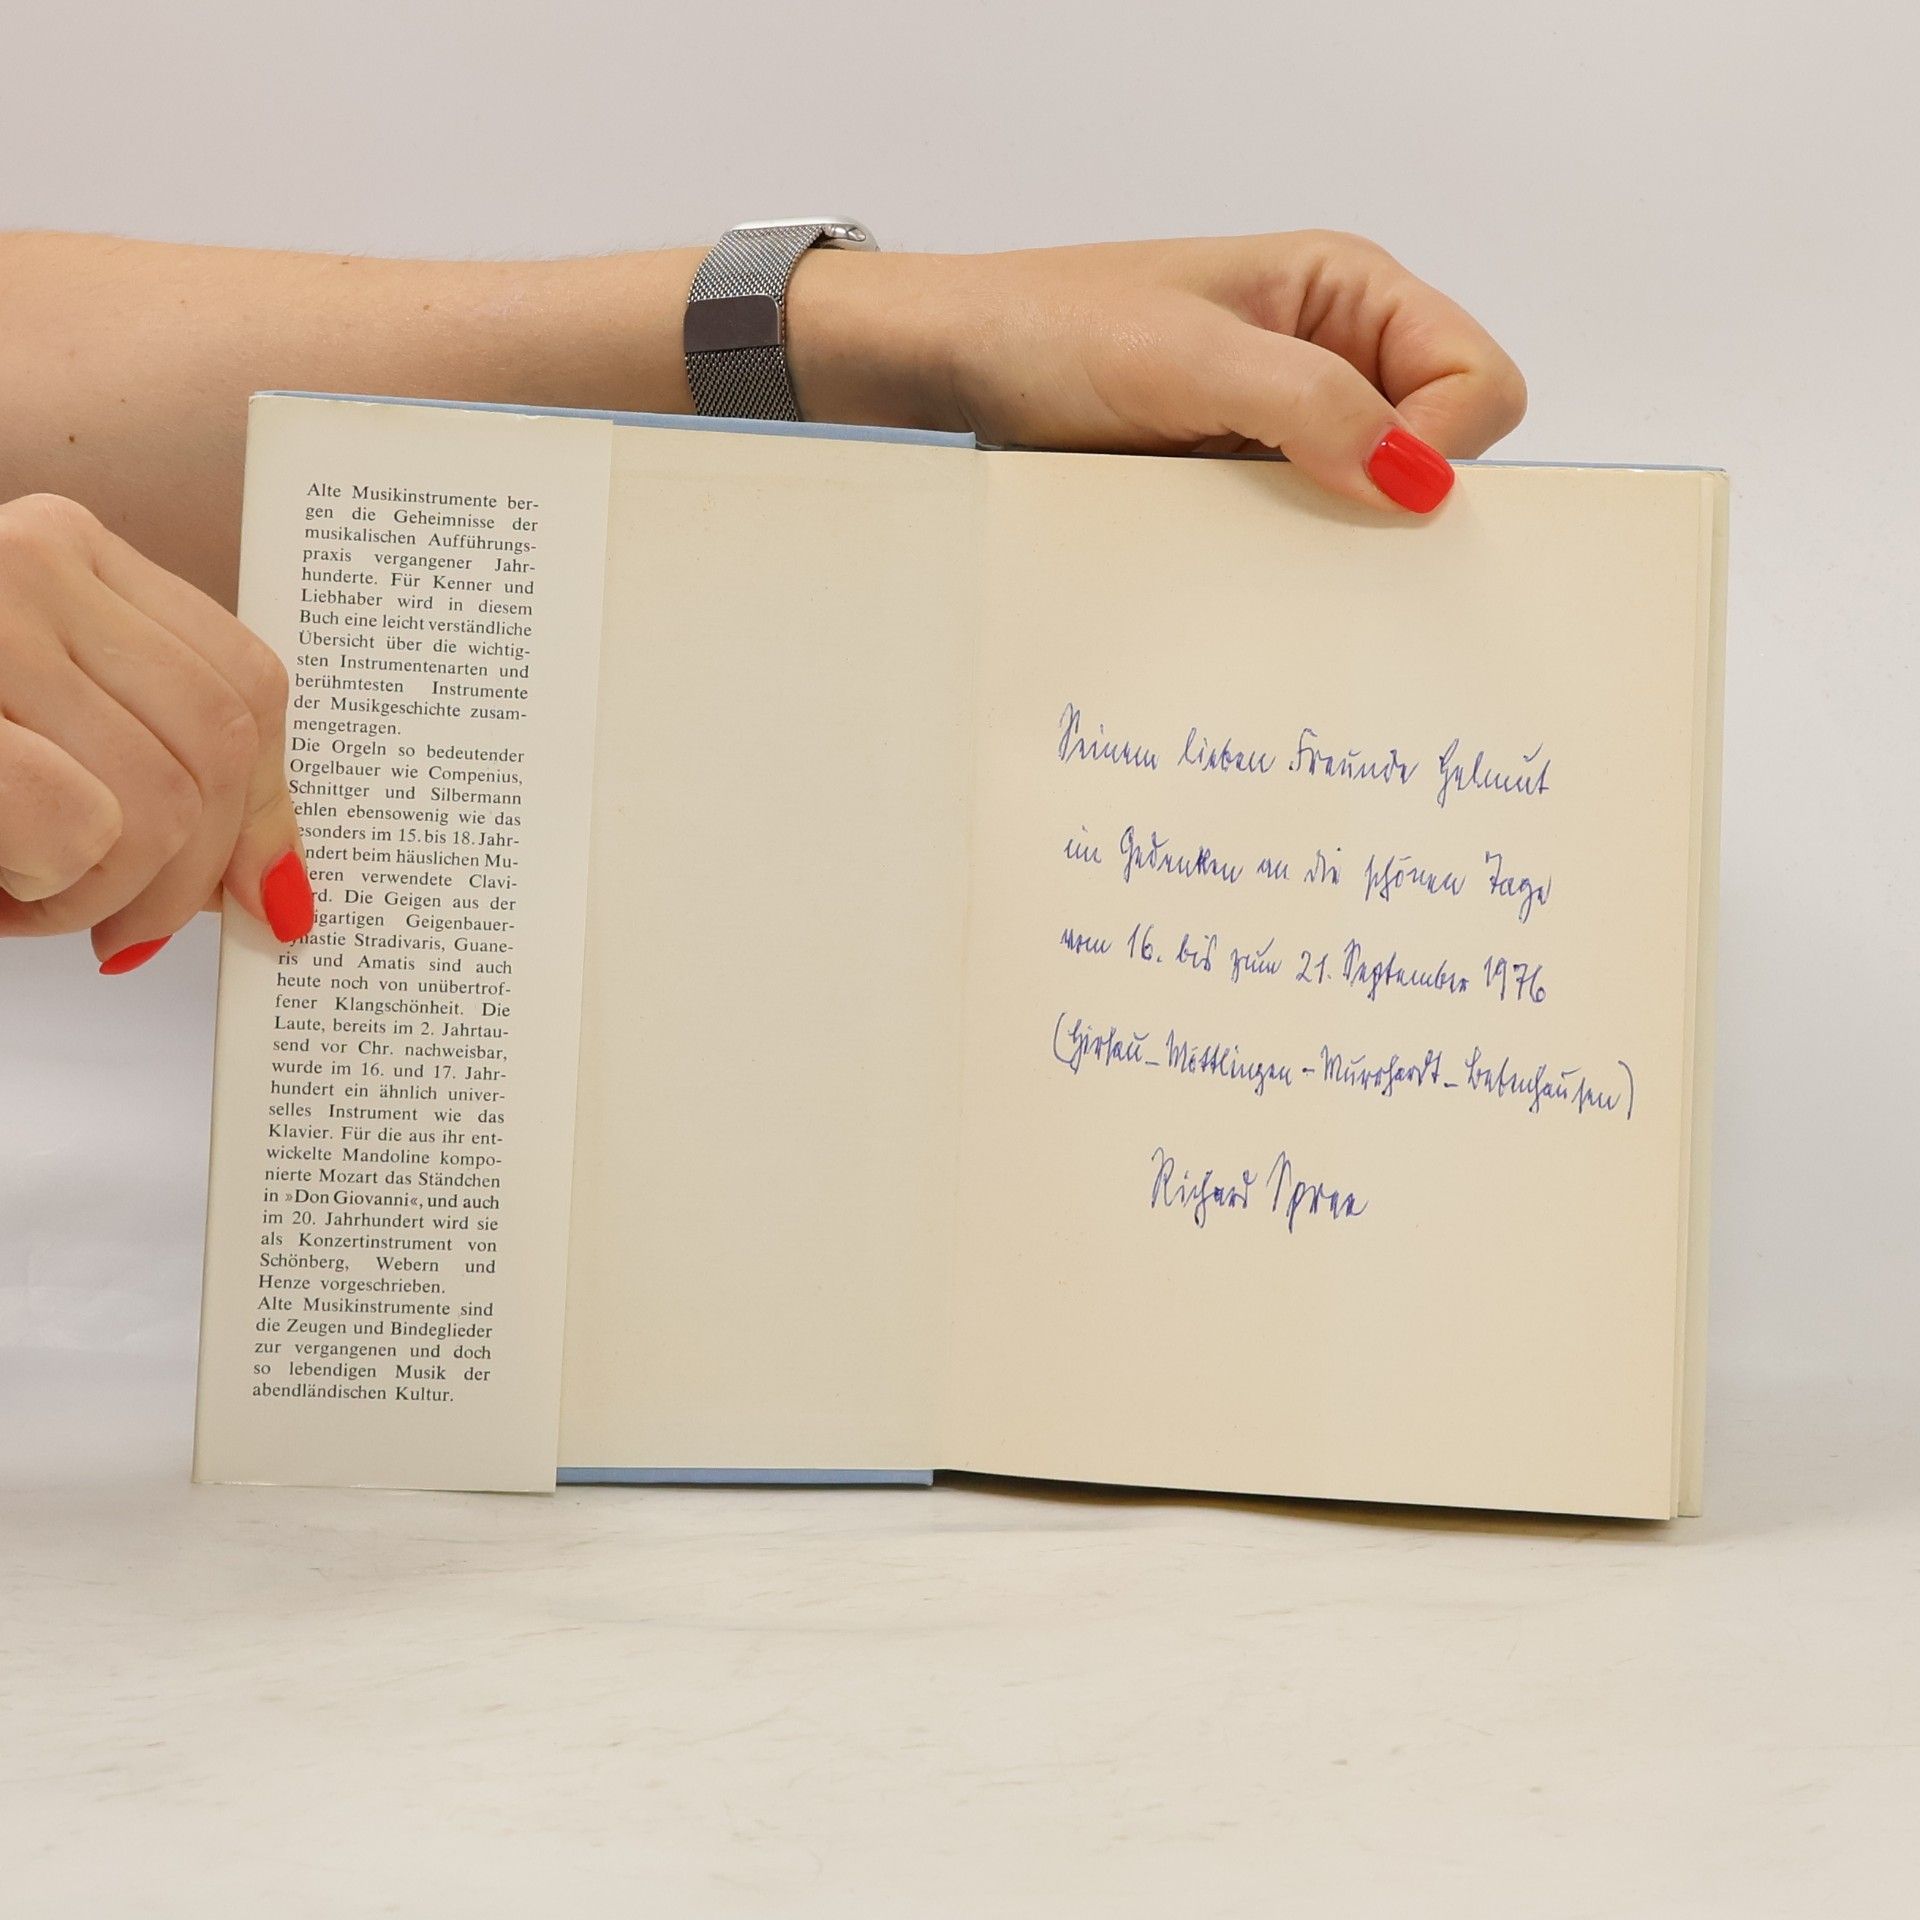 Alte Musikinstrumente ber-
gen die Geheimnisse der
musikalischen Aufführungs-
praxis vergangener Jahr-
hunderte. Für Kenner und
Liebhaber wird in diesem
Buch eine leicht verständliche
Übersicht über die wichtig-
sten Instrumentenarten und
berühmtesten Instrumente
der Musikgeschichte zusam-
mengetragen.
Die Orgeln so bedeutender
Orgelbauer wie Compenius,
Schnittger und Silbermann
ehlen ebensowenig wie das
esonders im 15. bis 18. Jahr-
ndert beim häuslichen Mu-
ieren verwendete Clavi-
rd. Die Geigen aus der
igartigen Geigenbauer-
ynastie Stradivaris, Guane-
ris und Amatis sind auch
heute noch von unübertrof-
fener Klangschönheit. Die
Laute, bereits im 2. Jahrtau-
send vor Chr. nachweisbar,
wurde im 16. und 17. Jahr-
hundert ein ähnlich univer-
selles Instrument wie das
Klavier. Für die aus ihr ent-
wickelte Mandoline kompo-
nierte Mozart das Ständchen
in »Don Giovanni«, und auch
im 20. Jahrhundert wird sie
als Konzertinstrument von
Schönberg, Webern und
Henze vorgeschrieben.
Alte Musikinstrumente sind
die Zeugen und Bindeglieder
zur vergangenen und doch
so lebendigen Musik der
abendländischen Kultur.
Seinem lieben Freunde Helmut
im Gedenken an die schönen Tage
vom 16. bis zum 21. September 1976
(Hirsau – Möttlingen – Murrhardt – Bebenhausen)
Richard Spree